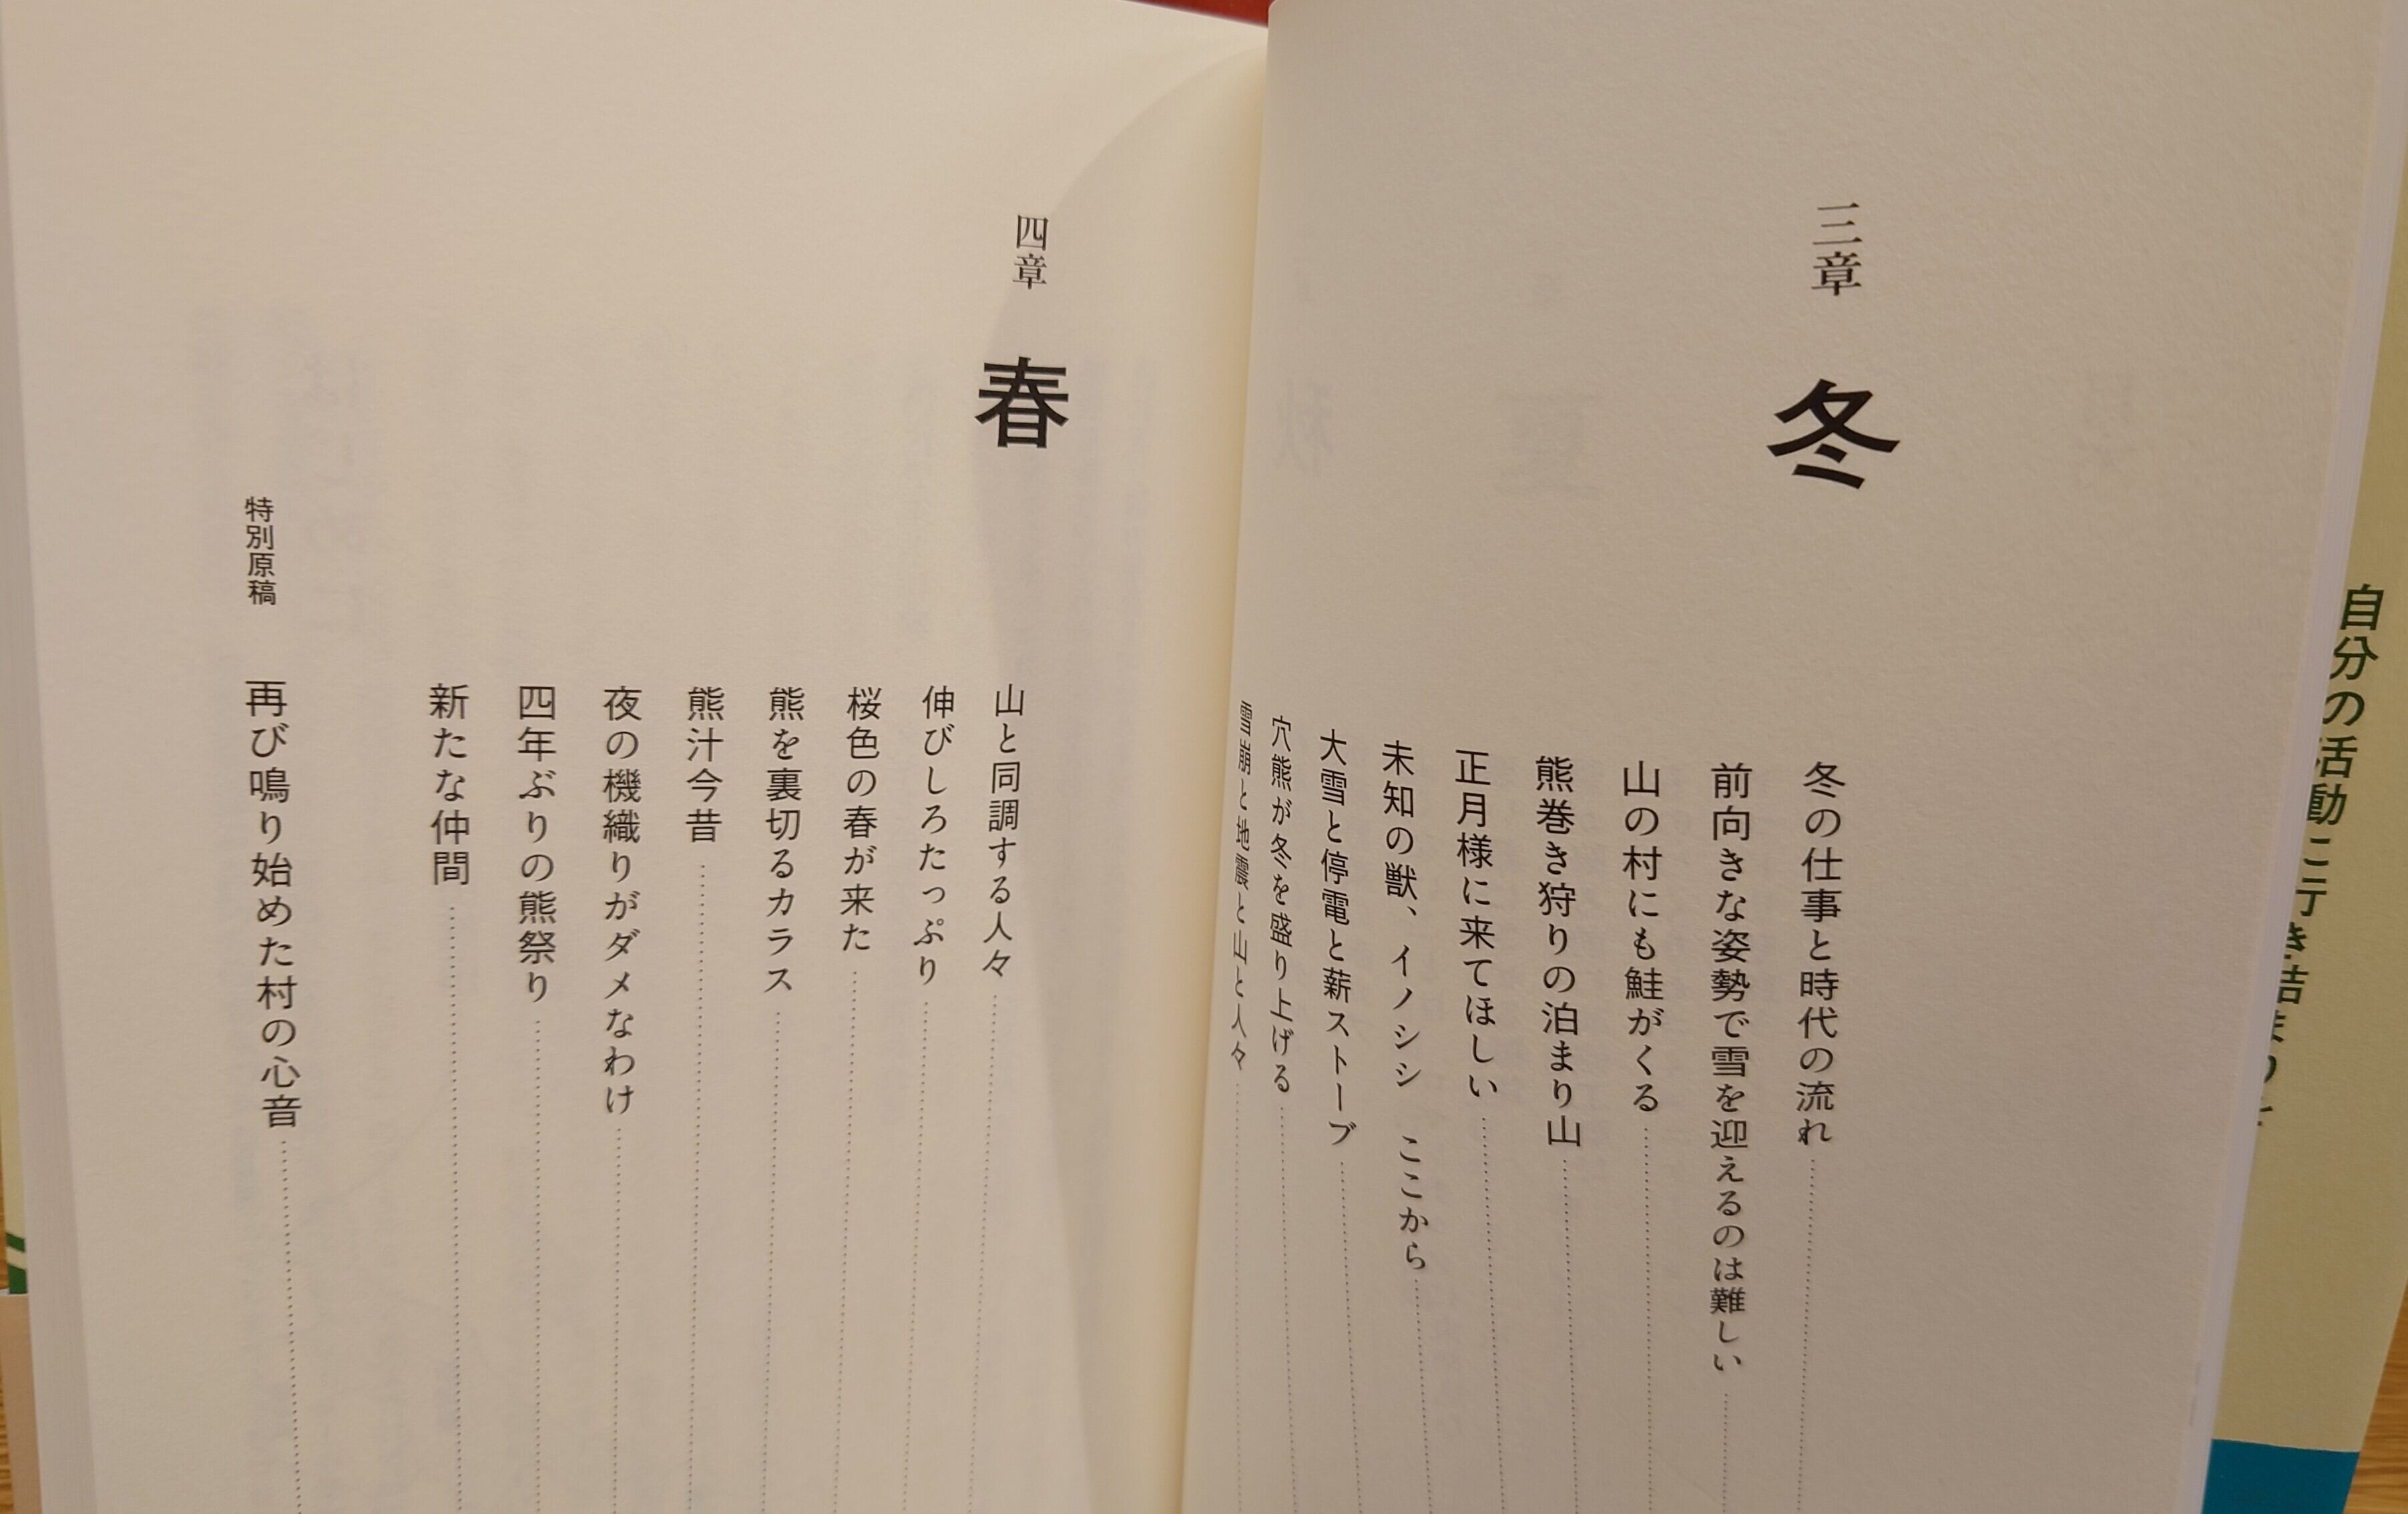 三章
冬
冬の仕事と時代の流れ
前向きな姿勢で雪を迎えるのは難しい
山の村にも鮭がくる
熊巻き狩りの泊まり山
正月様に来てほしい
未知の獣、イノシシ　ここから
大雪と停電と薪ストーブ
穴熊が冬を盛り上げる
雪崩と地震と山と人々
四章
春
山と同調する人々
伸びしろたっぷり
桜色の春が来た
熊を裏切るカラス
熊汁今昔
夜の機織りがダメなわけ
四年ぶりの熊祭り
新たな仲間
特別原稿
再び鳴り始めた村の心音
自分の活動に行き詰まり